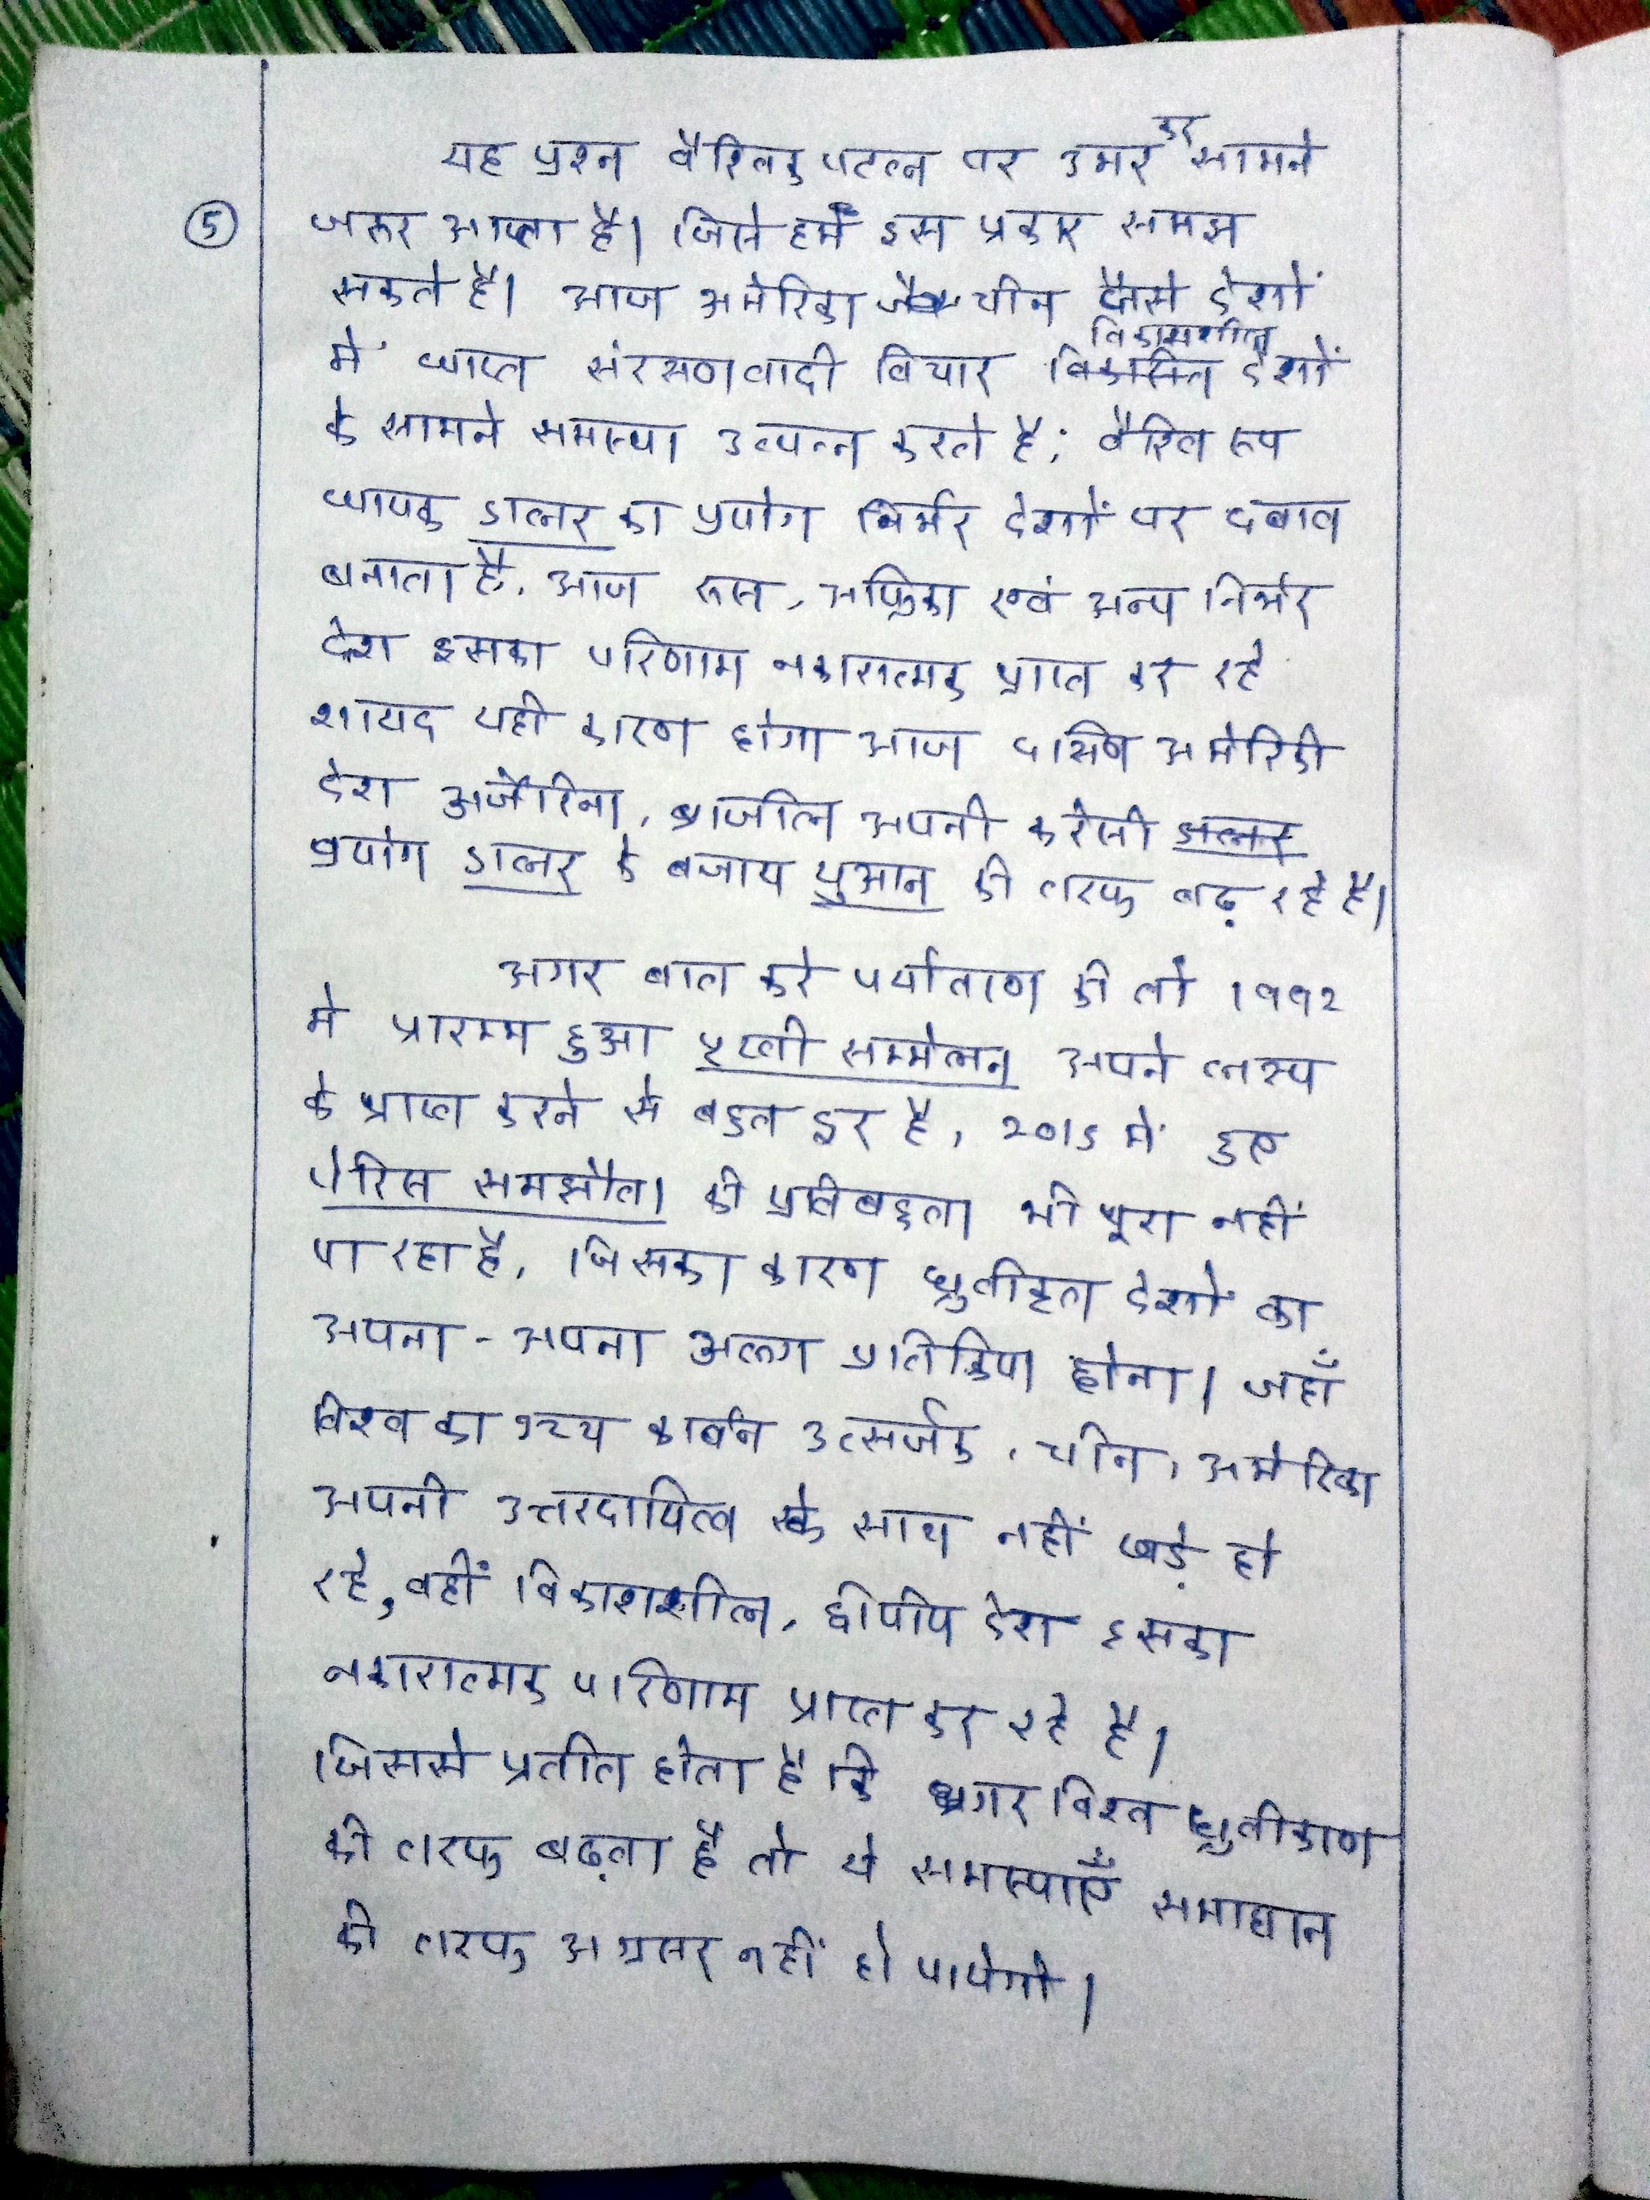 यह प्रश्न वैश्विक पटल पर उभर कर सामने
⑤ जरूर आता है। जिसे हमें इस प्रकार समझ
सकते है। आज अमेरिका चीन जैसे देशों
में व्याप्त संरक्षणवादी विचार विकासशील देशों
के सामने समस्या उत्पन्न करते है; वैश्वि रूप
व्यापक डालर का प्रयोग निर्भर देशों पर दबाव
बनाता है. आज रूस, अफ्रिका एवं अन्य निर्भर
देश इसका परिणाम नकारात्मक प्राप्त कर रहे
शायद यही कारण होगा आज दक्षिण अमेरिकी
देश अर्जेंटिना, ब्राजील अपनी करेंसी
प्रयोग डालर के बजाय युआन की तरफ बढ़ रहे है।
अगर बात करे पर्यावरण की तो 1992
मे प्रारम्भ हुआ पृथ्वी सम्मेलन अपने लक्ष्य
के प्राप्त करने से बहुत दूर है, 2015 में हुए
पेरिस समझौता की प्रतिबद्दता भी पूरा नहीं
पा रहा है, जिसका कारण ध्रुवीकृत देशों का
अपना - अपना अलग प्रतिक्रिया होना। जहाँ
विश्व का उच्च कार्बन उत्सर्जक, चीन, अमेरिका
अपनी उत्तरदायित्व के साथ नहीं खड़े हो
रहे, वहीं विकाशशील, द्वीपीय देश इसका
नकारात्मक परिणाम प्राप्त कर रहे है।
जिससे प्रतीत होता है कि अगर विश्व ध्रुवीकरण
की तरफ बढ़ता है तो ये समस्याएँ समाधान
की तरफ अग्रसर नहीं हो पायेगी।